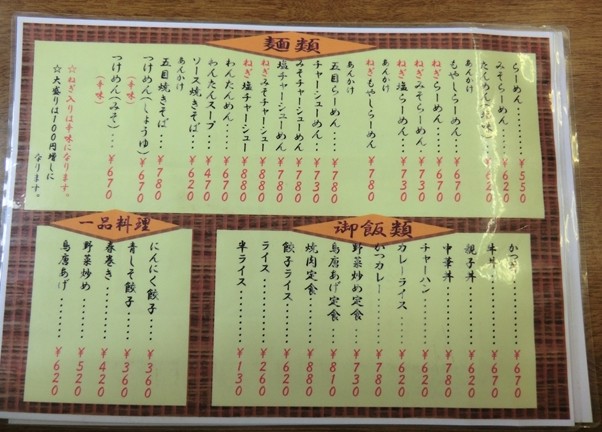 麺類
らーめん……¥550
みそらーめん……¥620
たんめん
あんかけ
もやしらーめん…¥670
ねぎらーめん……¥670
ねぎみそらーめん…¥730
ねぎ塩らーめん…¥730
あんかけ
ねぎもやしらーめん ¥780
あんかけ
五目らーめん……¥780
チャーシューめん…¥730
みそチャーシューめん ¥780
塩チャーシューめん ¥780
ねぎみそチャーシュー ¥880
ねぎ塩チャーシュー ¥880
わんたんめん……¥670
わんたんスープ…¥470
ソース焼きそば…¥620
あんかけ
五目焼きそば…¥780
つけめん(しょうゆ) ¥670
(辛味)
つけめん(みそ)…¥670
(辛味)
☆ねぎ入りは辛味になります。
☆大盛りは100円増しになります。
御飯類
¥670
牛丼……¥670
親子丼……¥620
中華丼……¥780
チャーハン……¥620
カレーライス……¥620
かつカレー……¥780
野菜炒め定食……¥730
鳥唐あげ定食……¥810
焼肉定食……¥880
餃子ライス……¥620
ライス……¥260
半ライス……¥130
一品料理
にんにく餃子…¥360
青しそ餃子……¥360
春巻き……¥420
野菜炒め……¥520
鳥唐あげ……¥620